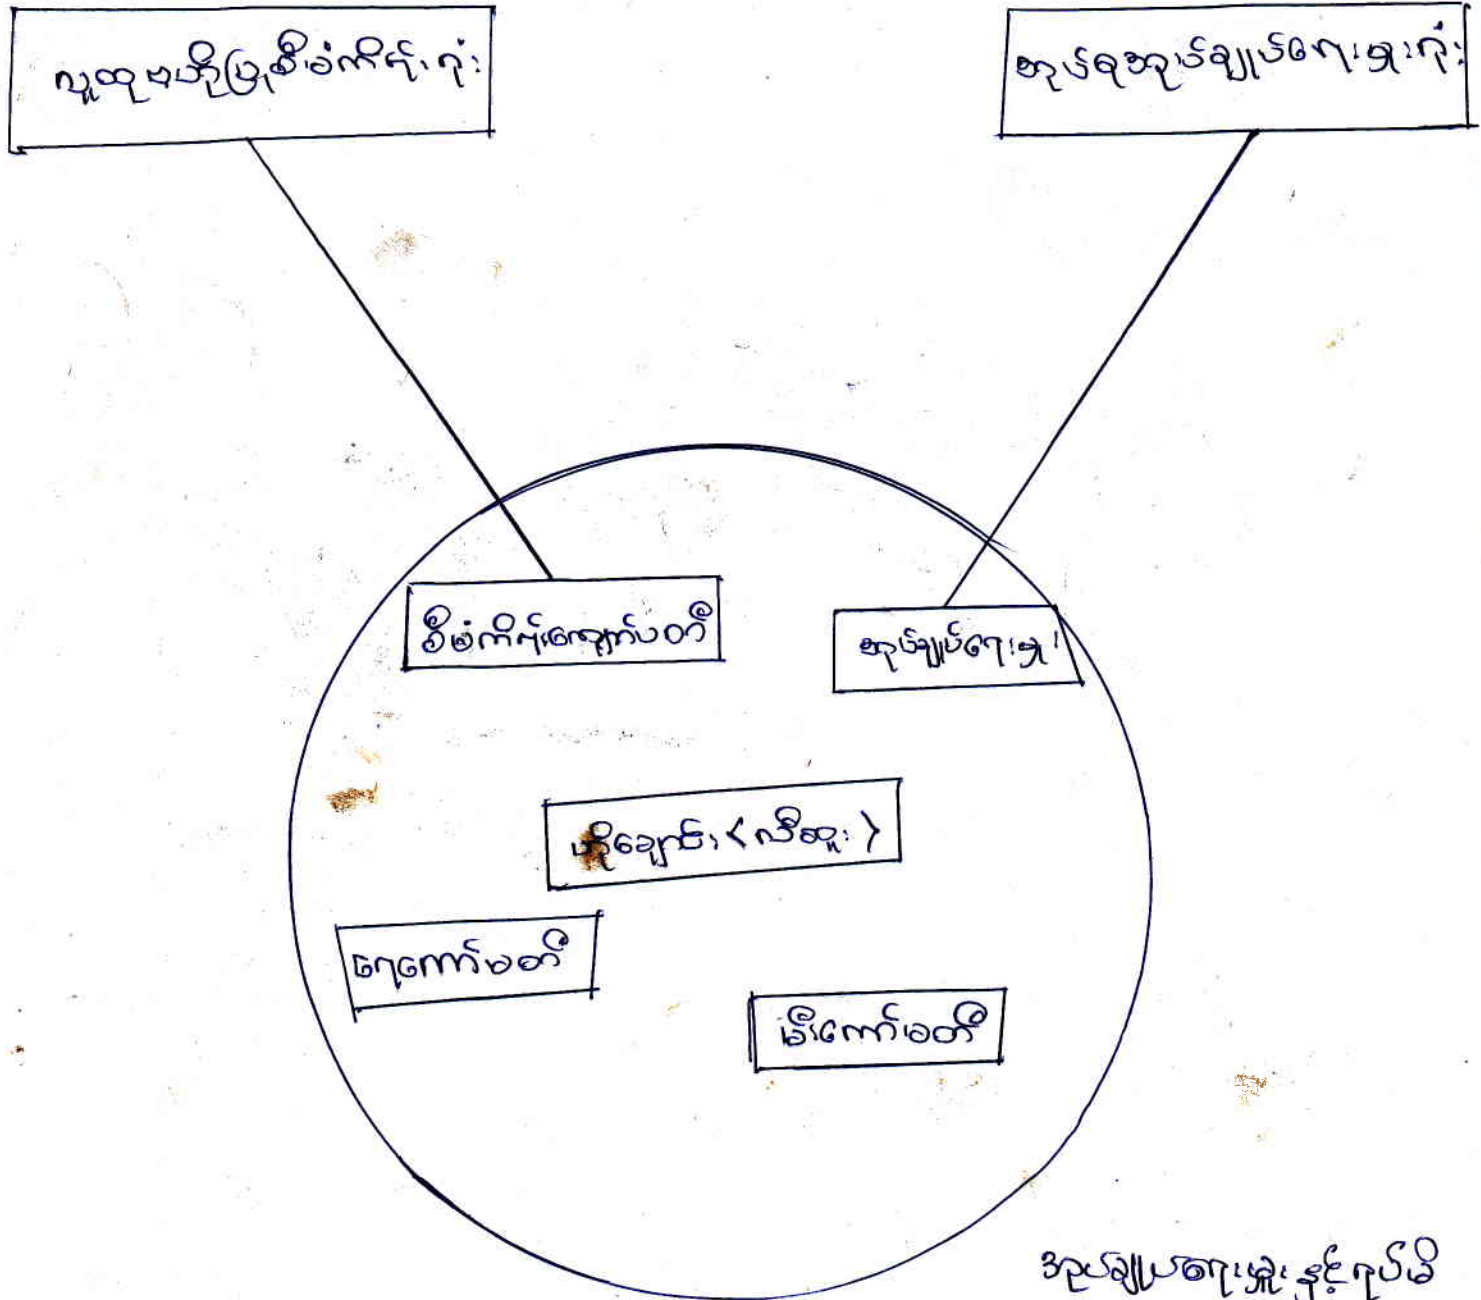 လူထုဗဟိုပြုစီမံကိန်းရုံး
အုပ်စုအုပ်ချုပ်ရေးမှူးရုံး
စီမံကိန်းကော်မတီ
အုပ်ချုပ်ရေးမှူး
ဟိုချောင်း <လီဆူး>
ရေကော်မတီ
မီးကော်မတီ
အုပ်ချုပ်ရေးမှူးနှင့် ရပ်မိ